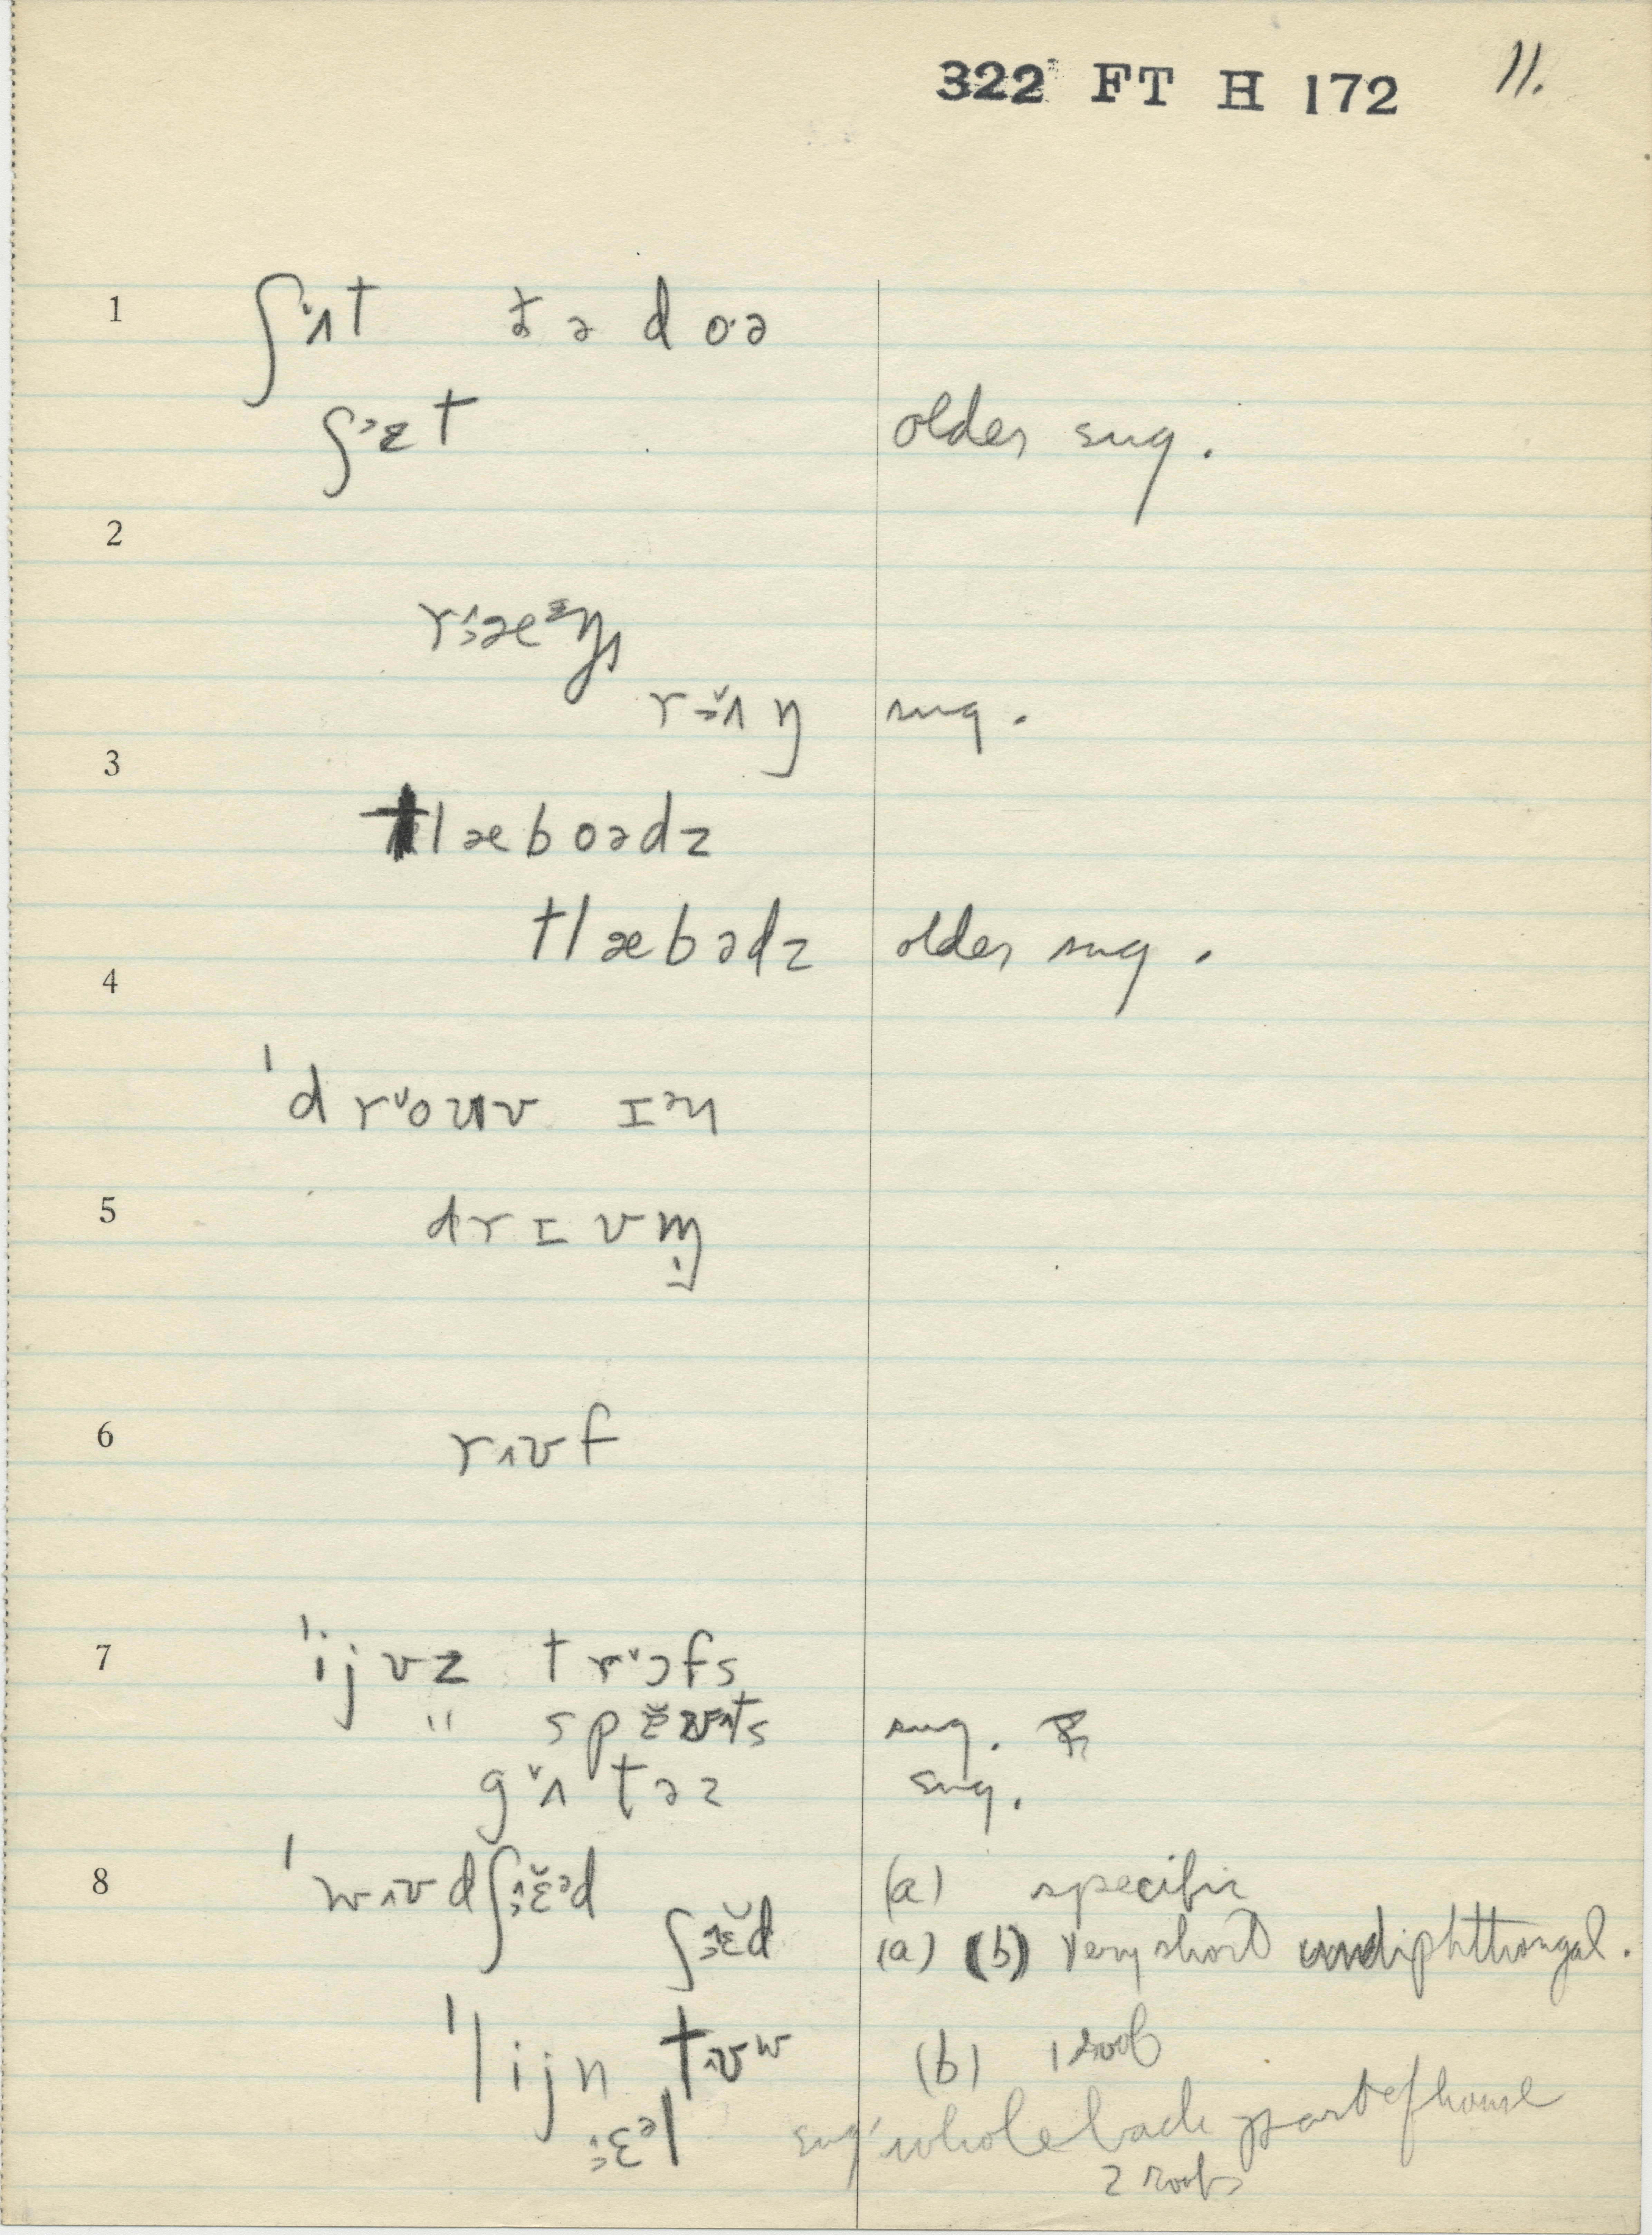 322 FT H 172 11.
1 ʃʌ̌t ðə doˑə
ʃɛt older sug.
2
ræᶻŋ
rʌ̌ŋ sug.
3
tlæboədz
tlæbədz older sug.
4
ˈdrouv ɪᵊn
5 drɪvm̩
6 rʊf
7 ˈijvz trɔfs
" sp ts sug.
gʌ̌təz sug.
8 ˈwʊdʃɛ̆ᵊd (a) specific
ʃɛ̆d (a) (b) very short undiphthongal.
ˈlijn tʊʷ (b) 1 roof
ɛᵊl sug. whole back part of house
2 roofs